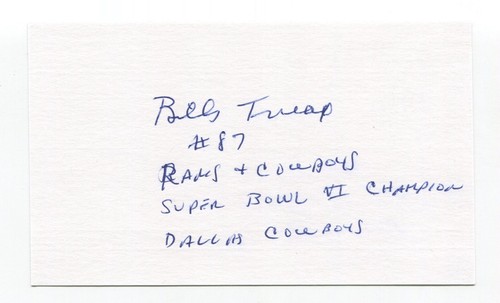 Billy Truax
#87
Rams + Cowboys
Super Bowl VI Champion
Dallas Cowboys